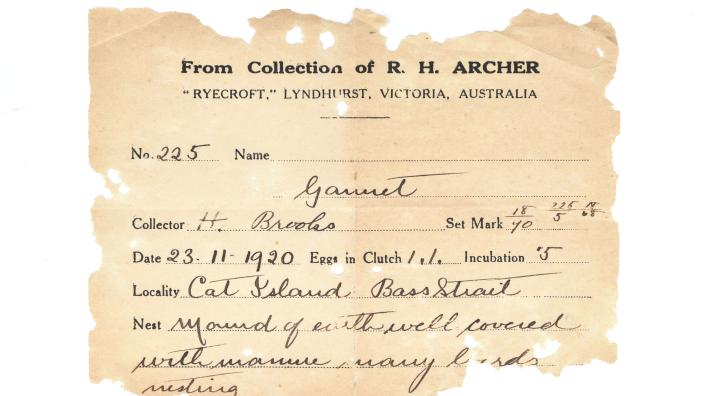 From Collection of R. H. ARCHER
"RYECROFT," LYNDHURST, VICTORIA, AUSTRALIA
No. 225 Name
Gannet
Collector H. Brooks Set Mark 18/40 225/5
Date 23-11-1920 Eggs in Clutch 1/1. Incubation
Locality Cat Island Bass Strait
Nest Mound of earth well covered
with manure many
nesting